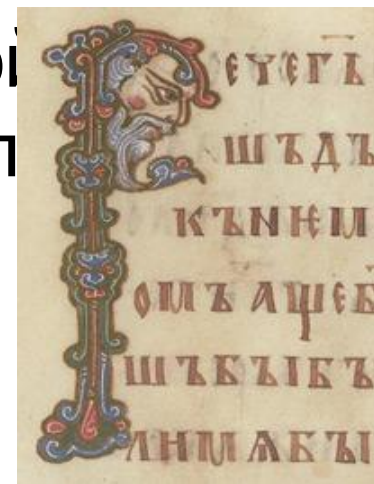 РЕЧЕГЬ
ШЪДЪ
КЪНѤМ
ОМЪАЩЕБ
ШЪБЪІБЪ
ЛИМѦБЪІ